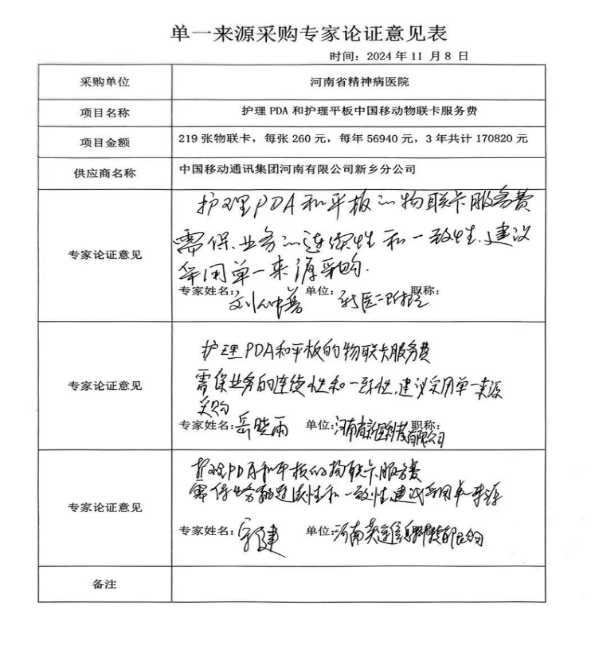 单一来源采购专家论证意见表
时间：2024 年 11 月 8 日
采购单位 河南省精神病医院
项目名称 护理 PDA 和护理平板中国移动物联卡服务费
项目金额 219 张物联卡，每张 260 元，每年 56940 元，3 年共计 170820 元
供应商名称 中国移动通讯集团河南有限公司新乡分公司
护理PDA和平板的物联卡服务费
需保业务的连续性和一致性.建议
采用单一来源采购.
专家论证意见
专家姓名: 单位: 职称:
护理PDA和平板的物联卡服务费
需保业务的连续性和一致性,建议采用单一来源
采购
专家论证意见
专家姓名: 岳晓雨 单位: 职称:
护理PDA和平板的物联卡服务费
需保业务的连续性和一致性建议采用单一来源
专家论证意见
专家姓名: 单位:
备注